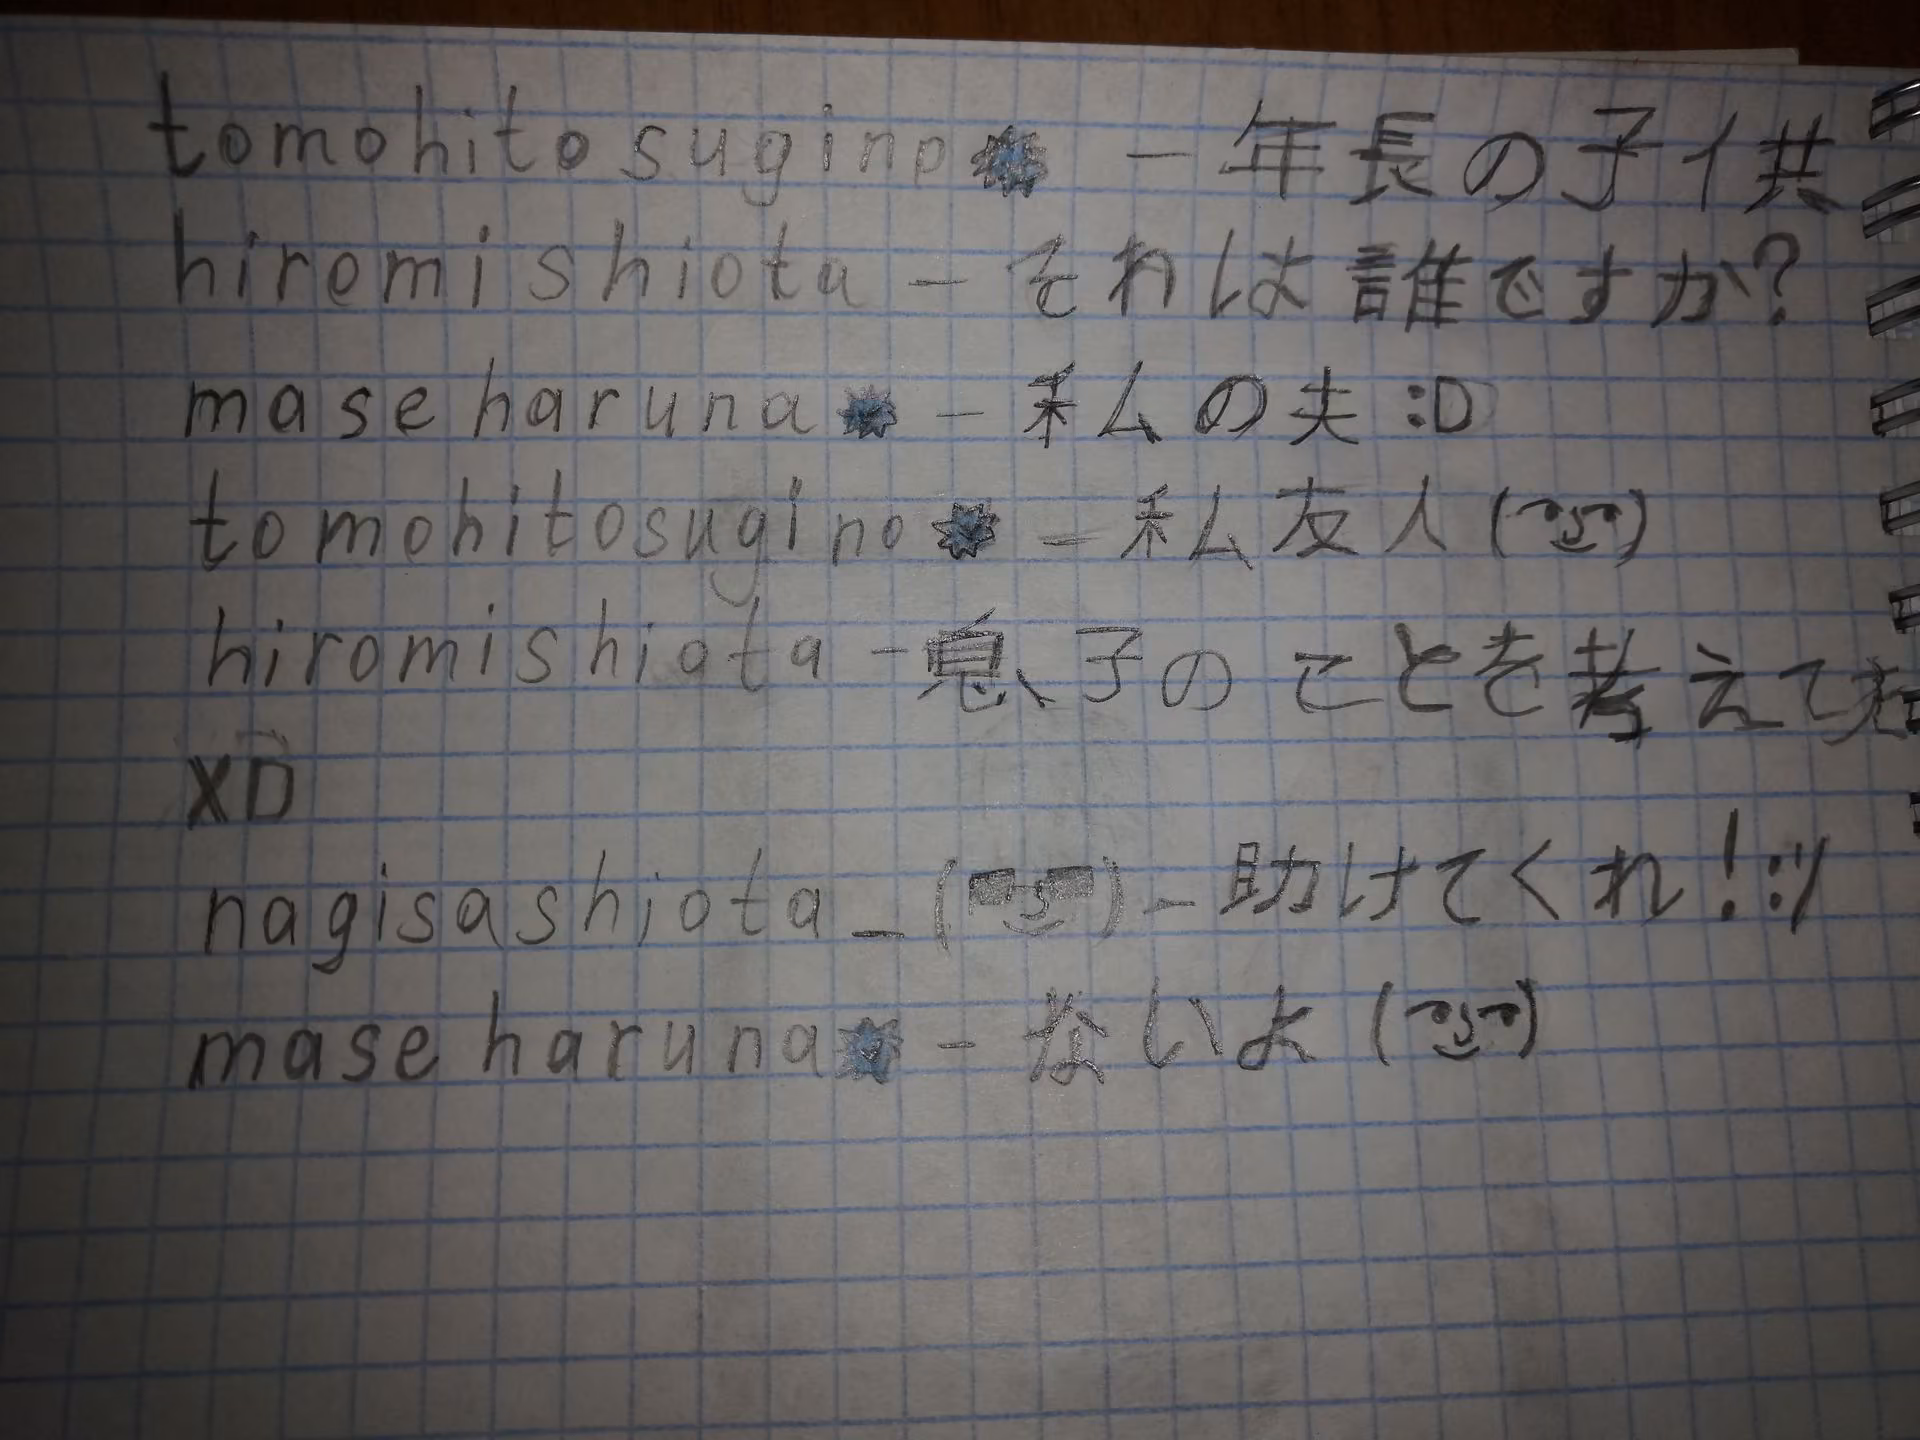 tomohitosugino - 年長の子供
hiromishiota - それは誰ですか?
mase haruna - 私の夫 :D
tomohitosugino - 私友人
hiromishiota - 息子のことを考えて
XD
nagisashiota_ - 助けてくれ! :/
mase haruna - ないよ